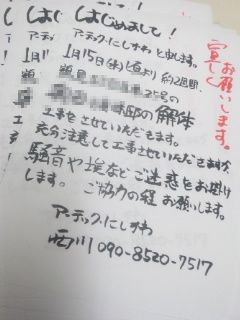 はじめまして!
アーテックにしかわと申します。
1月15日(水)頃より約2週間、
邸の解体
工事をさせていただきます。
充分注意して工事させていただきますが
騒音や埃などご迷惑をお掛け
します。ご協力の程お願いします。
アーテックにしかわ
西川 090-8520-7517
宜しく
お願いします。